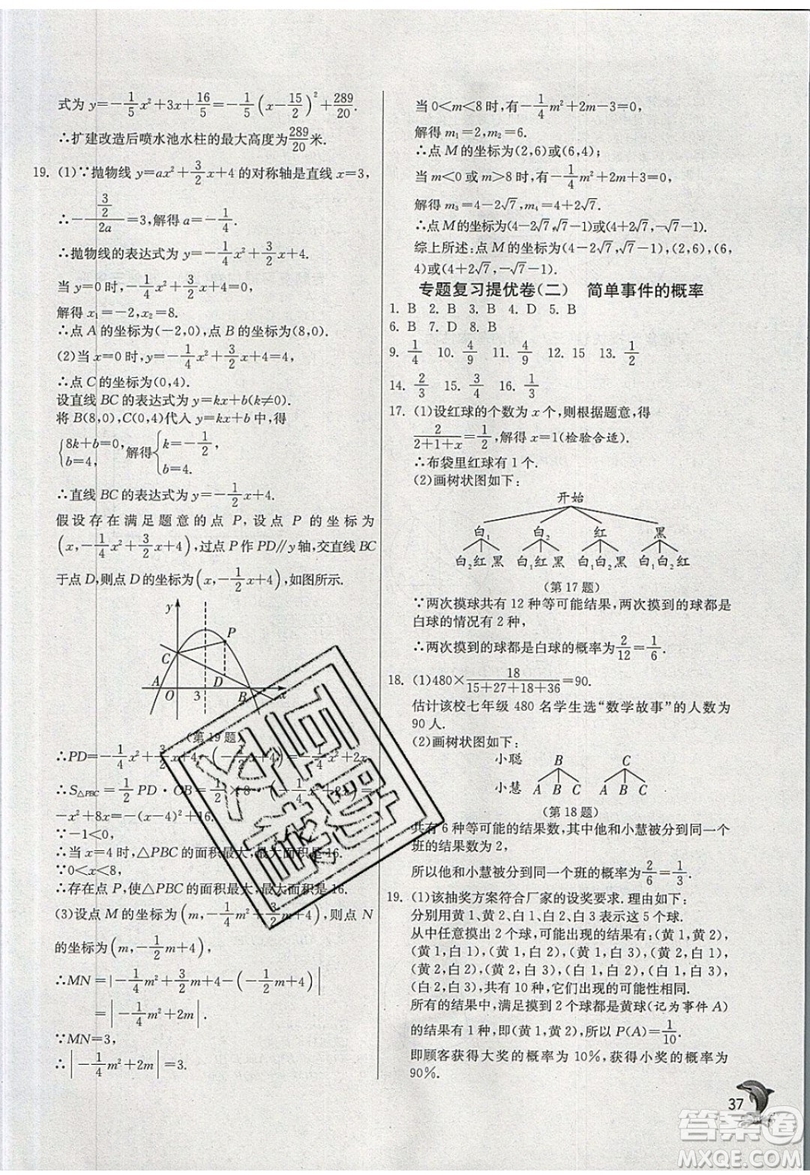 式为 y=-1/5x²+3x+16/5=-1/5(x-15/2)²+289/20.
∴扩建改造后喷水池水柱的最大高度为289/20米.
19. (1)∵抛物线 y=ax²+3/2x+4 的对称轴是直线 x=3,
∴-(3/2)/(2a)=3,解得 a=-1/4.
∴抛物线的表达式为 y=-1/4x²+3/2x+4.
当 y=0 时,-1/4x²+3/2x+4=0,
解得 x₁=-2,x₂=8.
∴点 A 的坐标为(-2,0),点 B 的坐标为(8,0).
(2)当 x=0 时,y=-1/4x²+3/2x+4=4,
∴点 C 的坐标为(0,4).
设直线 BC 的表达式为 y=kx+b(k≠0).
将 B(8,0),C(0,4)代入 y=kx+b 中,得
{8k+b=0, b=4, 解得{k=-1/2, b=4.
∴直线 BC 的表达式为 y=-1/2x+4.
假设存在满足题意的点 P,设点 P 的坐标为
(x,-1/4x²+3/2x+4),过点 P 作 PD∥y 轴,交直线 BC
于点 D,则点 D 的坐标为(x,-1/2x+4),如图所示.
y
P
C
A O 3 D B x
(第 19 题)
∴PD=-1/4x²+3/2x+4-
∴S△PBC=1/2PD·OB=1/2×8·
=-x²+8x=-(x-4)²+16.
∵-1<0,
∴当 x=4 时,△PBC 的面积最大,最大面积是 16.
∴存在点 P,使△PBC 的面积最大,最大面积是 16.
(3)设点 M 的坐标为(m,-1/4m²+3/2m+4),则点 N
的坐标为(m,-1/2m+4),
∴MN=|-1/4m²+3/2m+4-(-1/2m+4)|
=|-1/4m²+2m|.
∵MN=3,
∴|-1/4m²+2m|=3.
当 0<m<8 时,有-1/4m²+2m-3=0,
解得 m₁=2,m₂=6.
∴点 M 的坐标为(2,6)或(6,4).
当 m<0 或 m>8 时,有-1/4m²+2m+3=0,
解得 m₃=4-2√7,m₄=4+2√7.
∴点 M 的坐标为(4-2√7,√7-1)或(4+2√7,-√7-1).
综上所述:点 M 的坐标为(4-2√7,√7-1),(2,6),(6,
4)或(4+2√7,-√7-1).
专题复习提优卷(二) 简单事件的概率
1. B 2. B 3. D 4. D 5. B
6. B 7. D 8. B
9. 1/4 10. 4/9 11. 1/4 12. 4/9 13. 1/2
14. 2/3 15. 1/3 16. 4/3
17. (1)设红球的个数为 x 个,则根据题意,得
2/(2+1+x)=1/2,解得 x=1(检验合适).
∴布袋里红球有 1 个.
(2)画树状图如下:
开始
白₁ 白₂ 红 黑
白₂红 黑 白₁红 黑 白₁白₂黑 白₁白₂红
(第 17 题)
∵两次摸球共有 12 种等可能结果,两次摸到的球都是
白球的情况有 2 种,
∴两次摸到的球都是白球的概率为2/12=1/6.
18. (1)480×18/(15+27+18+36)=90.
估计该校七年级 480 名学生选“数学故事”的人数为
90 人.
(2)画树状图如下:
小聪 A B
小慧 A B C A B C
(第 18 题)
共有 6 种等可能的结果数,其中他和小慧被分到同一个
班的结果数为 2,
所以他和小慧被分到同一个班的概率为2/6=1/3.
19. (1)该抽奖方案符合厂家的设奖要求.理由如下:
分别用黄 1,黄 2,白 1、白 2、白 3 表示这 5 个球.
从中任意摸出 2 个球,可能出现的结果有:(黄 1,黄 2),
(黄 1,白 1),(黄 1,白 2),(黄 1,白 3),(黄 2,白 1),
(黄 2,白 2),(黄 2,白 3),(白 1,白 2),(白 1,白 3),
(白 2,白 3),共有 10 种,它们出现的可能性相同.
所有的结果中,满足摸到 2 个球都是黄球(记为事件 A)
的结果有 1 种,即(黄 1,黄 2),所以 P(A)=1/10.
即顾客获得大奖的概率为 10%,获得小奖的概率为
90%.
37
答案圈
MXQE.COM